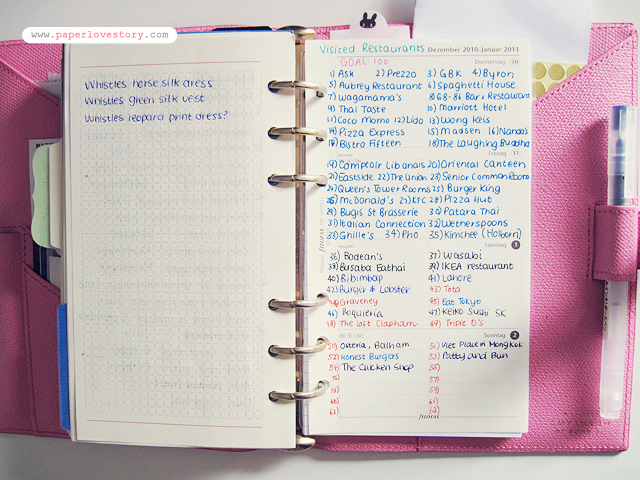 www.paperlovestory.com
Whistles horse silk dress
Whistles green silk vest
Whistles leopard print dress?
Visited Restaurants Dezember 2010-Januar 2011
GOAL: 100 Donnerstag 30
1) Ask 2) Prezzo 3) GBK 4) Byron
5) Aubrey Restaurant 6) Spaghetti House
7) Wagamama's 8) 68-86 Bar & Restaurant
9) Thai Taste 10) Marriott Hotel
11) Coco Momo 12) Lido 13) Wong Keis
14) Pizza Express 15) Madsen 16) Nando's
17) Bistro Fifteen 18) The Laughing Buddha
Freitag 31
19) Comptoir Libanais 20) Oriental Canteen
21) Eastside 22) The Union 23) Senior Common Room
24) Queen's Tower Rooms 25) Burger King
26) McDonald's 27) KFC 28) Pizza Hut
29) Bugis St Brasserie 30) Patara Thai
31) Italian Connection 32) Wetherspoons
33) Ghille's 34) Pho 35) Kimchee (Holborn)
Samstag 1
36) Bodean's 37) Wasabi
38) Busaba Eathai 39) IKEA restaurant
40) Bibimbap 41) Lahore
42) Burger & Lobster 43) Tota
Graveney 45) Eat Tokyo
46) Boquieria 47) Keiko Sushi SK
48) The Loft Clapham 49) Triple O's
Sonntag 2
50) Osteria, Balham 51) Viet Place in Mong Kok
52) Honest Burgers 53) Patty and Bun
54) The Chicken Shop 55)
56) 57)
58) 59)
60) 61)
62) 63)
filofax